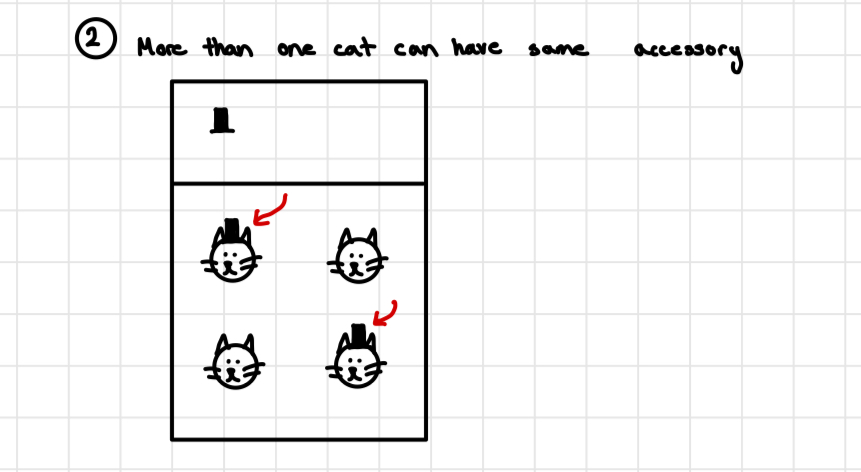 2 More than one cat can have same accessory